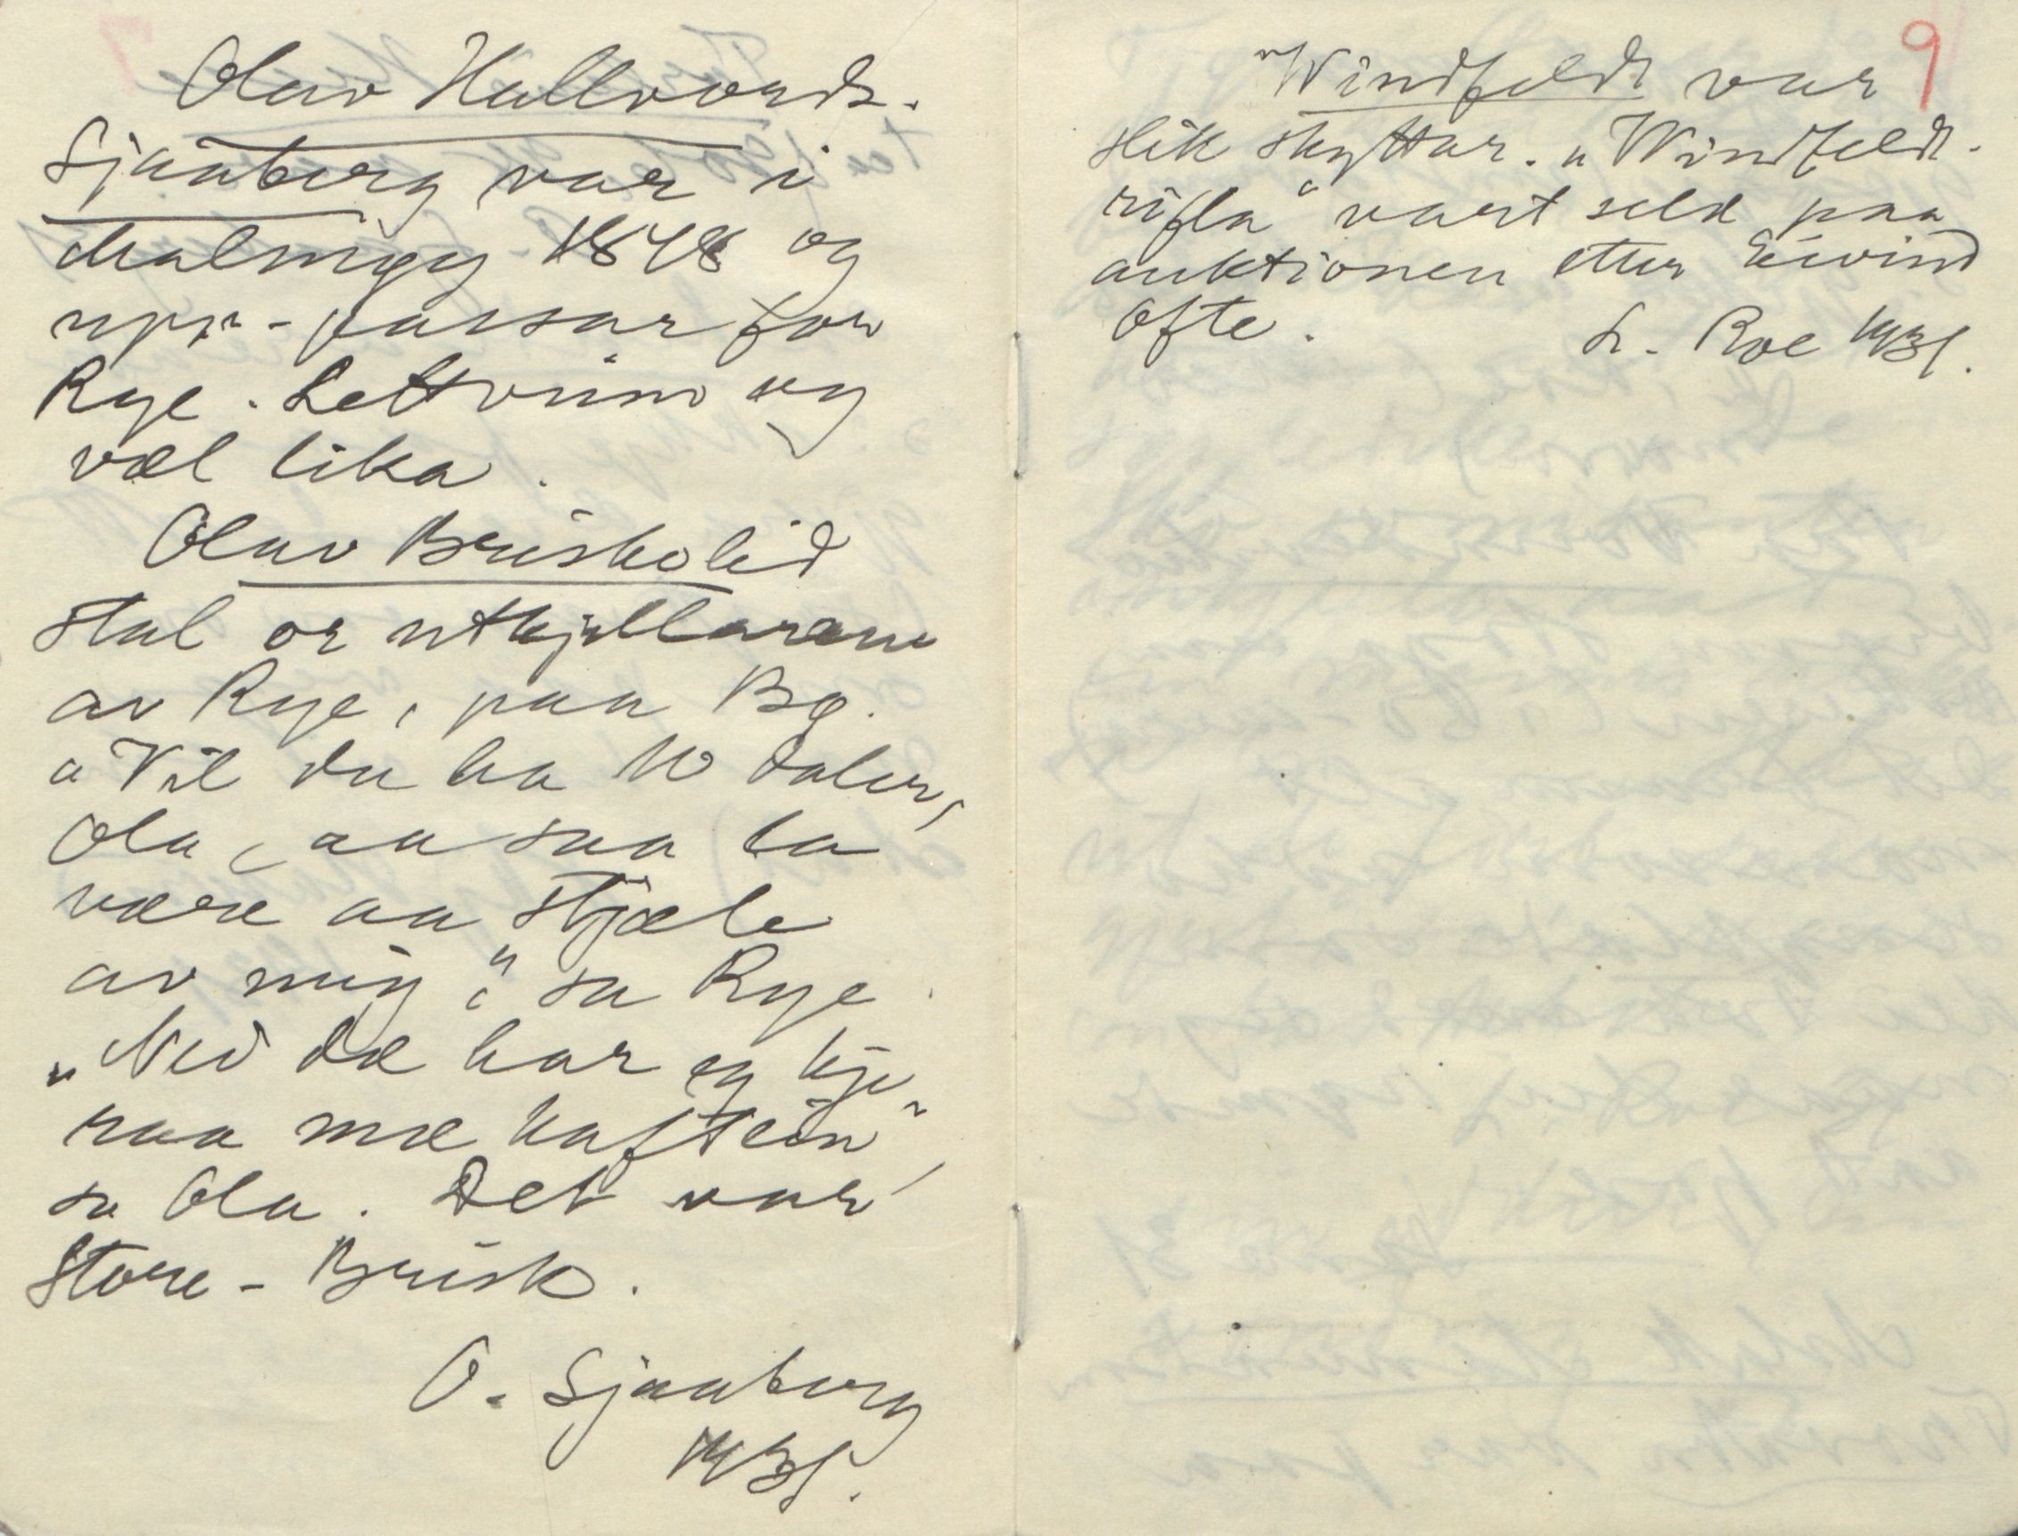 Olav Hallvards.
Sjaaberg var i
Malmøy 1848 og
upp-passar for
Rye. Lettvinn og
væl lika.
Olav Briskelid
stal or utkjellaranne
av Rye, paa Bø.
„Vil du ha 10 daler,
Ola, aa saa la
være aa stjæle
av mig", sa Rye.
„Nei dæ har eg kje
raa mæ kaftein"
sa Ola. Det var
Store-Brisk.
O. Sjaaberg
1931.
9
"Windfeldt var
slik skyttar. „Windfeldt-
rifla" vart seld paa
auktionen etter Eivind
Ofte.
L. Roe 1931.